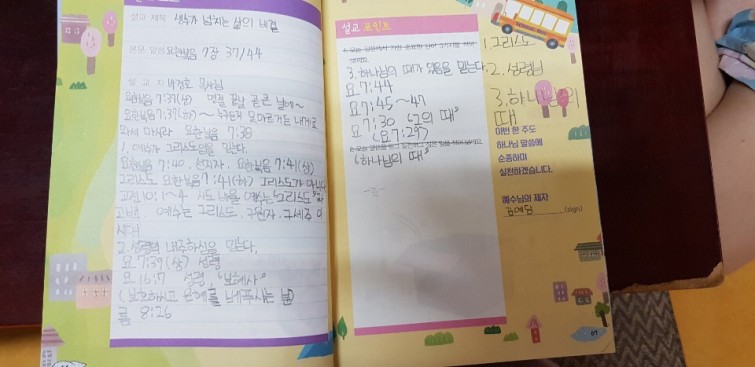 설교 제목 생수가 넘치는 삶의 비결
본문 말씀 요한복음 7장 37/44
설 교 자 목사님
요한복음 7:37(상) 명절 끝날 곧 큰 날에~
요한복음 7:37(하)~ 누구든지 목마르거든 내게로
와서 마시라 요한복음 7:38
1. 예수가 그리스도임을 믿는다.
요한복음 7:40. 선지자. 요한복음 7:41(상)
그리스도 요한복음 7:41(하) 그리스도가 아니다
고전 10:1~4 사도 바울 예수는 그리스도
예수는 그리스도. 구원자. 구세주 이
시다!
2. 성령의 내주하심을 믿는다.
요 7:39(상) 성령
요 16:7 성령, "보혜사"
(보호하시고 은혜를 베푸시는 분)
롬 8:26
설교 포인트
3. 하나님의 때가 있음을 믿는다.
요 7:44
요 7:45~47
요 7:30 "그의 때"
(요 7:29)
(하나님의 때"
1. 그리스도
2. 성령님
3. 하나님의
때
이번 한 주도
하나님 말씀에
순종하며
실천하겠습니다.
예수님의 제자
(sign)